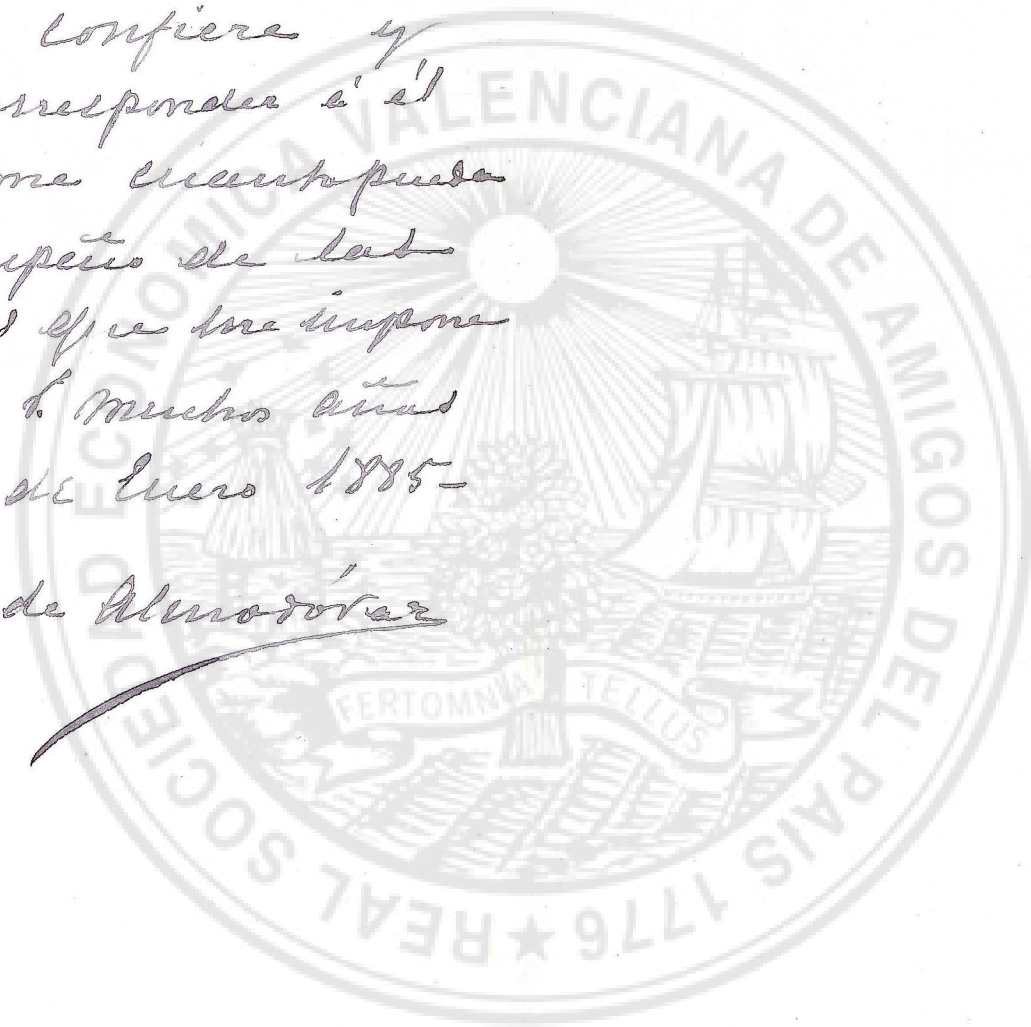 confiere y
rresponder á él
one cuanto pueda
mpeño de las
s que me impone
V. muchos años
de Enero 1885-
de Almodóvar
REAL SOCIEDAD ECONOMICA VALENCIANA DE AMIGOS DEL PAIS 1776 ★
FERTOMNIA TELLUS